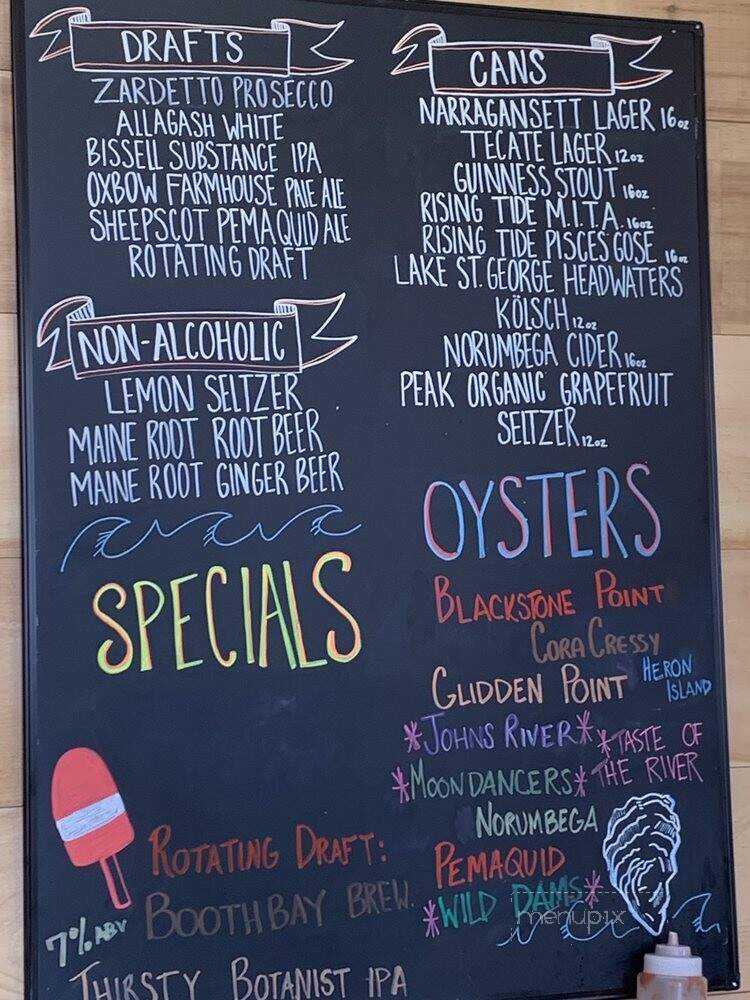 DRAFTS
ZARDETTO PROSECCO
ALLAGASH WHITE
BISSELL SUBSTANCE IPA
OXBOW FARMHOUSE PALE ALE
SHEEPSCOT PEMAQUID ALE
ROTATING DRAFT
NON-ALCOHOLIC
LEMON SELTZER
MAINE ROOT ROOT BEER
MAINE ROOT GINGER BEER
SPECIALS
ROTATING DRAFT:
BOOTHBAY BREW.
7% ABV
THIRSTY BOTANIST IPA
CANS
NARRAGANSETT LAGER 16oz
TECATE LAGER 12oz
GUINNESS STOUT 16oz
RISING TIDE M.I.T.A. 16oz
RISING TIDE PISCES GOSE 16oz
LAKE ST. GEORGE HEADWATERS
KÖLSCH 12oz
NORUMBEGA CIDER 16oz
PEAK ORGANIC GRAPEFRUIT
SELTZER 12oz
OYSTERS
BLACKSTONE POINT
CORA CRESSY
GLIDDEN POINT
HERON
ISLAND
*JOHNS RIVER*
*TASTE OF
THE RIVER
*MOONDANCERS*
NORUMBEGA
PEMAQUID
*WILD DAMS*
menupix